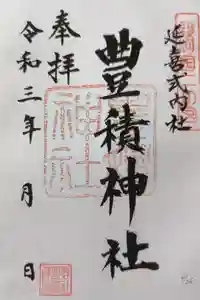 延喜式内社
豊積神社
奉拝
令和三年 月 日